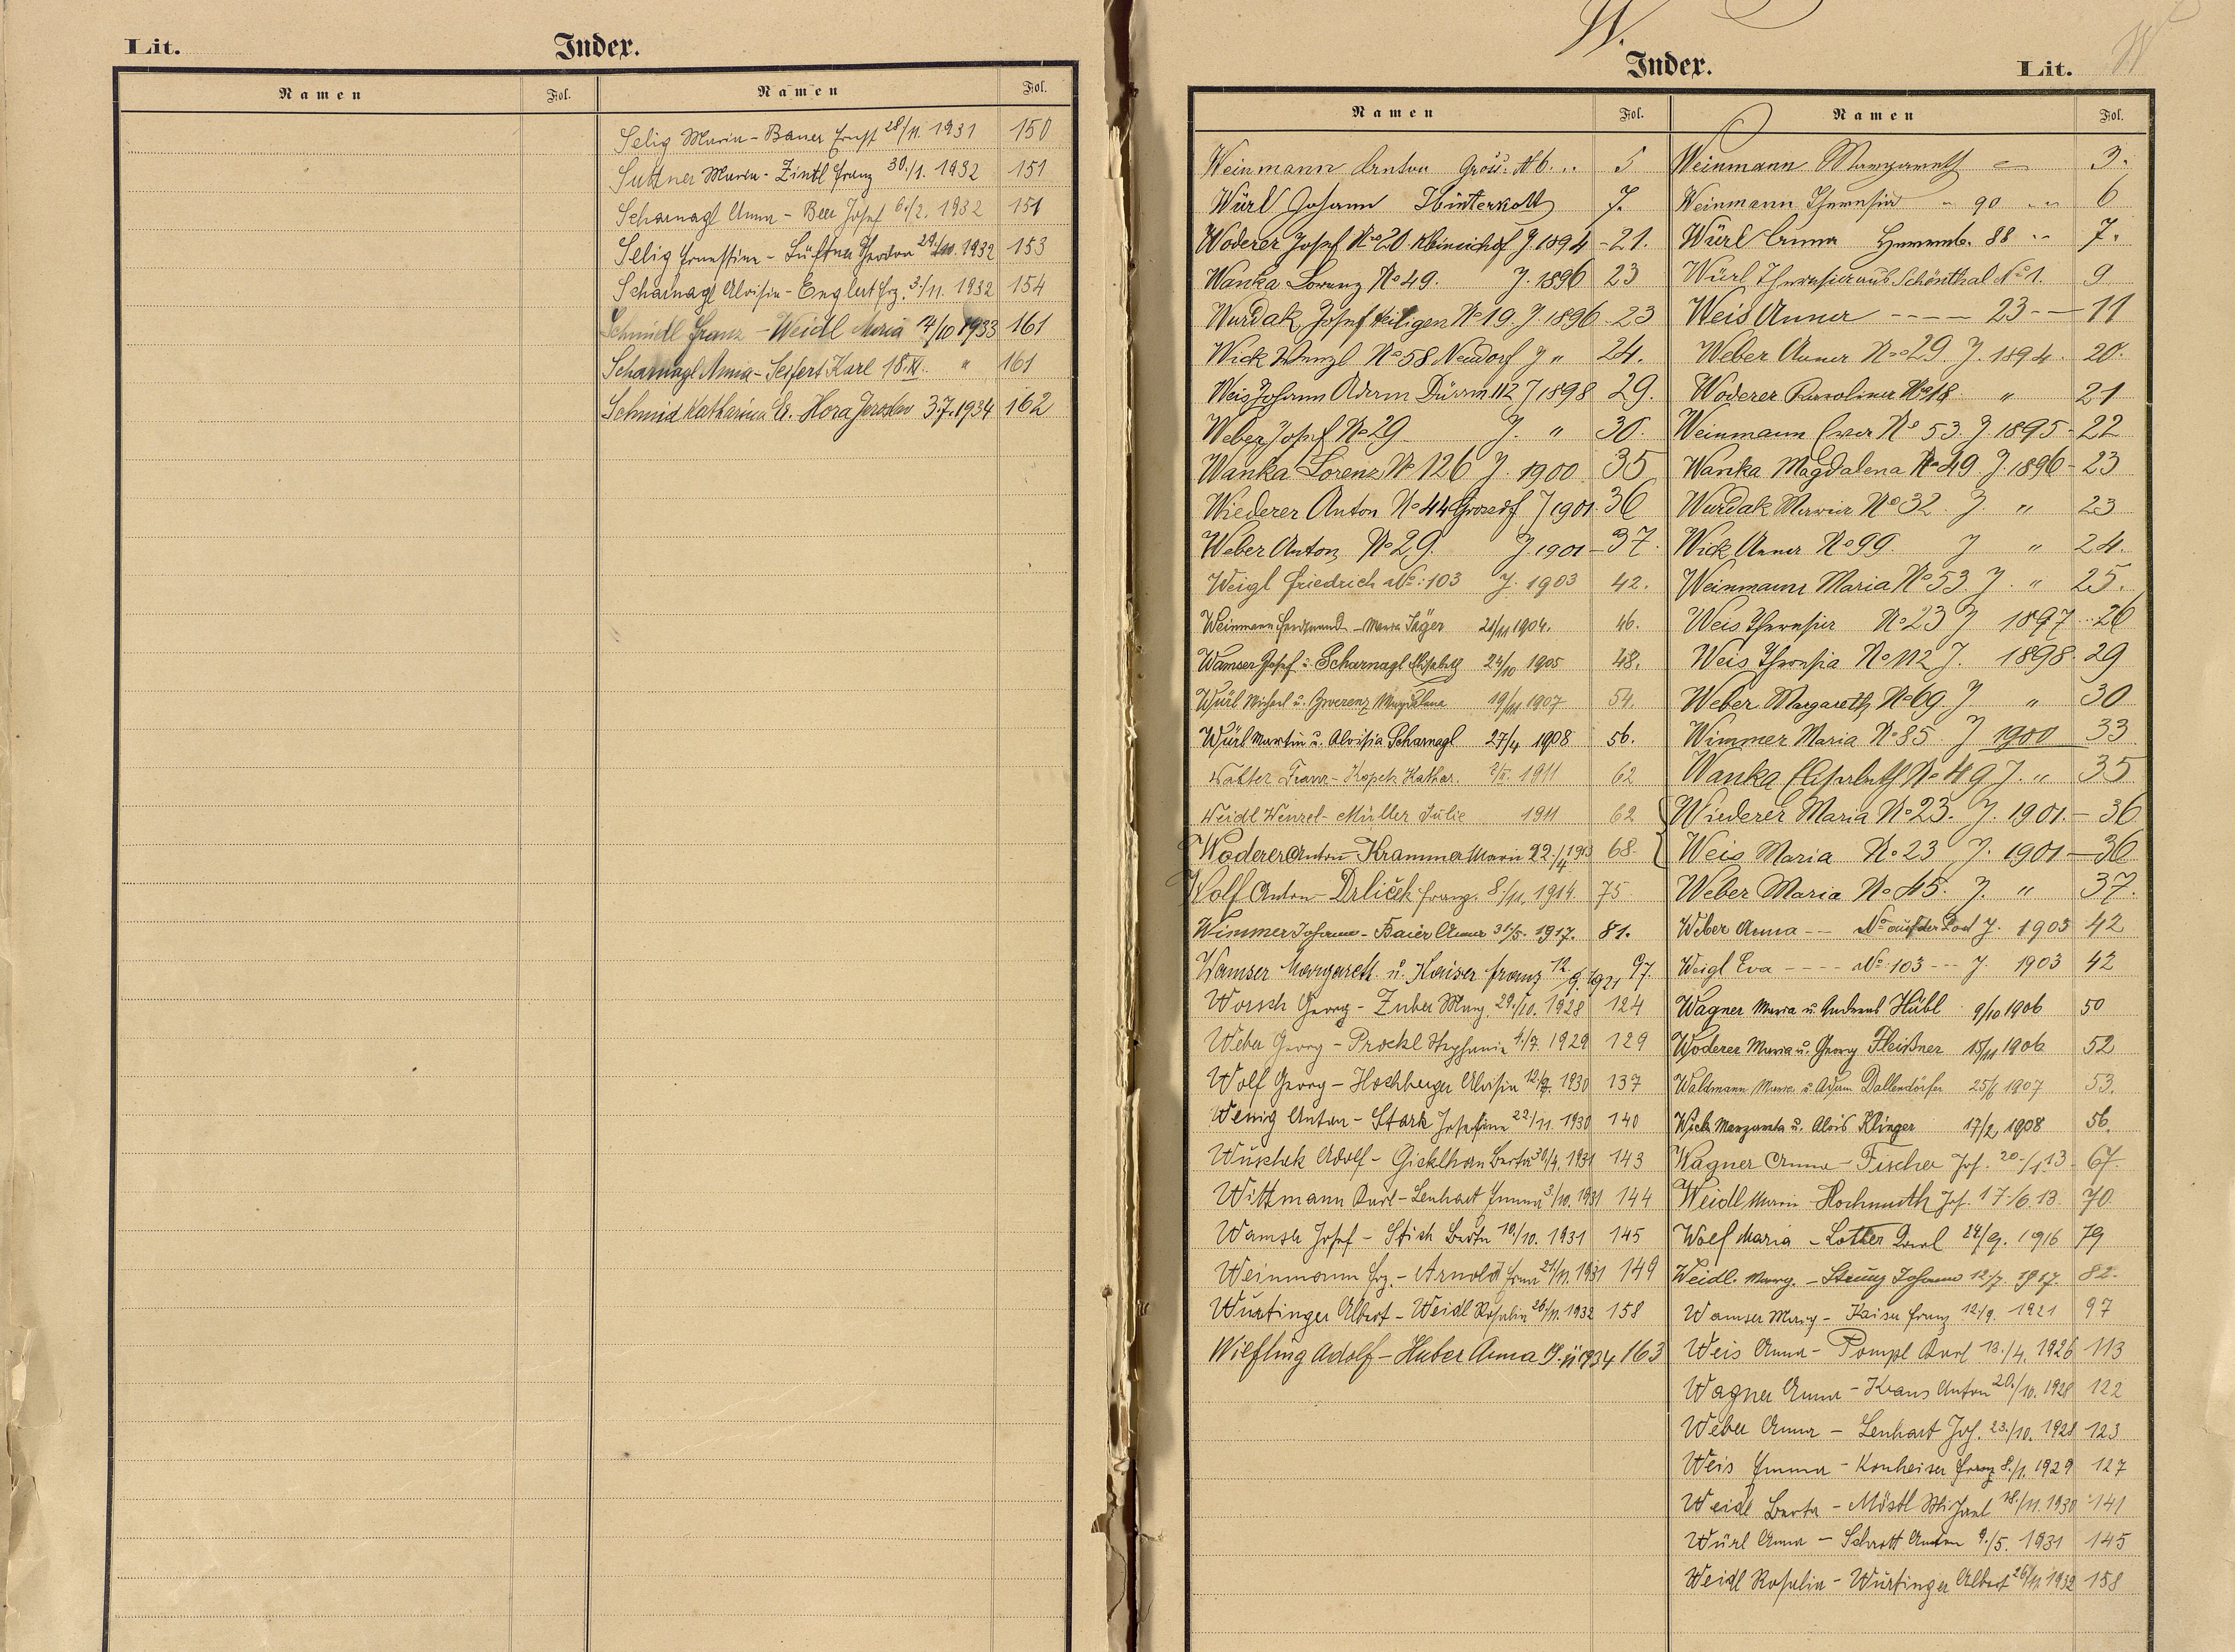 Lit.
Index.
Namen Fol. Namen Fol.
Selig Maria - Bauer Ernst 28/11. 1931 150
Suttner Maria - Zintl Franz 30./1. 1932 151
Scharnagl Anna - Beer Josef 6./2. 1932 151
Selig Ernestine - Lüftner Theodor 29./10. 1932 153
Scharnagl Aloisia - Englert Frz. 3./11. 1932 154
Schmidl Franz - Weidl Maria 14/10 1933 161
Scharnagl Anna - Seifert Karl 18.XI. " 161
Schmid Katharina Hora Jaroslav 3.7.1934 162
W.
Index.
Lit. W
Namen Fol.
Weinmann Anton 5
Würl Johann Hinterkott 7.
Woderer Josef No 20 Kleinsichdf J 1894 - 21.
Wanka Lorenz No 49. J. 1896 23
Wurdak Josef Heiligen No 19. J 1896 - 23
Wick Wenzl No 58 Neudorf J " 24.
Weis Johann Adam Dürrm 112 J 1898 29.
Weber Josef No 29 J. " 30.
Wanka Lorenz No 126 J. 1900 35
Wiederer Anton No 44 Grossdf J 1901. 36
Weber Anton No 29. J. 1901 - 37.
Weigl Friedrich No: 103 J. 1903 42.
Weinmann Ferdinand - Maria Jäger 21/11 1904. 46.
Wamser Josef u. Scharnagl Elisabeth 24/10 1905 48.
Würl Michael u. Zwerenz Magdalena 19/11 1907 54.
Würl Martin u. Aloisia Scharnagl 27/4 1908 56.
Walter Franz - Kopek Kathar. 1911 62
Weidl Wenzel - Müller Julie 1911 62
Woderer Anton - Krammer Marie 22./4 1913 68.
Wolf Anton - Drliček Franz. 8./11. 1914. 75
Wimmer Johann - Baier Anna 31/5. 1917. 81.
Wamser Margareth u. Kaiser Franz 12./9. 1921 97.
Worsch Georg - Zuber Marg. 29./10. 1928 124
Weber Georg - Prockl Stephanie 1./7. 1929 129
Wolf Georg - Hochberger Aloisia 12./7. 1930 137
Wenig Anton - Stark Josefine 22./11. 1930 140
Wuschek Adolf - Gicklhorn Berta 30/4. 1931 143
Wittmann Karl - Lenhart Emma 3./10. 1931 144
Wamser Josef - Stich Berta 10./10. 1931 145
Weinmann Frz. - Arnold Erna 21/11. 1931 149
Wurtinger Albert - Weidl Rosalia 26/11. 1932 158
Wiefling Adolf - Huber Anna 1934 163
Namen Fol.
Weinmann Margareth 3.
Weinmann Theresia - 90 6
Würl Anna 88 7.
Würl Theresia aus Schönthal No 1. 9
Weis Anna - - - - 23 - - 11
Weber Anna No 29. J. 1894. 20.
Woderer Karolina No 18 " 21
Weinmann Eva No 53. J. 1895 - 22
Wanka Magdalena No 49. J. 1896 - 23
Wurdak Maria No 32 J. " 23
Wick Anna No 99. J " 24.
Weinmann Maria No 53. J. " 25.
Weis Theresia No 23 J 1897 .. 26
Weis Theresia No 112 J. 1898. 29
Weber Margareth No 69. J " 30
Wimmer Maria No 85 J 1900 33
Wanka Elisabeth No 49 J. " 35
Wiederer Maria No 23. J. 1901. - 36
Weis Maria No 23 J. 1901 - 36
Weber Maria No 45. J. " 37.
Weber Anna - - No auf der Lod J. 1903 42
Weigl Eva - - - - No: 103 - - J. 1903 42
Wagner Maria u. Andreas Hübl 9/10 1906 50
Woderer Maria u. Georg Fleißner 15/11 1906 52
Waldmann Marie u. Adam Dallendörfer 25/6 1907 53.
Wick Margareta u. Alois Klinger 17/2 1908 56.
Wagner Anna - Fischer Jos. 20./1.13 - 67.
Weidl Marie - Hochmuth Jos. 17./6.13. 70.
Wolf Maria - Lotter Karl 24/9. 1916 79
Weidl. Marg. - Streug Johann 12/7. 1917. 82.
Wamser Marg - Kaiser Franz 12./9. 1921 97
Weis Anna - Pompl Karl 13./4. 1926 113
Wagner Anna - Kraus Anton 20./10. 1928 122
Weber Anna - Lenhart Jos. 23./10. 1928 123
Weis Emma - Konheiser Franz 8./1. 1929 127
Weidl Berta - Möstl Michael 18./11. 1930 141
Würl Anna - Schrott Anton 9./5. 1931 145
Weidl Rosalia - Wurtinger Albert 26/11 1932 158